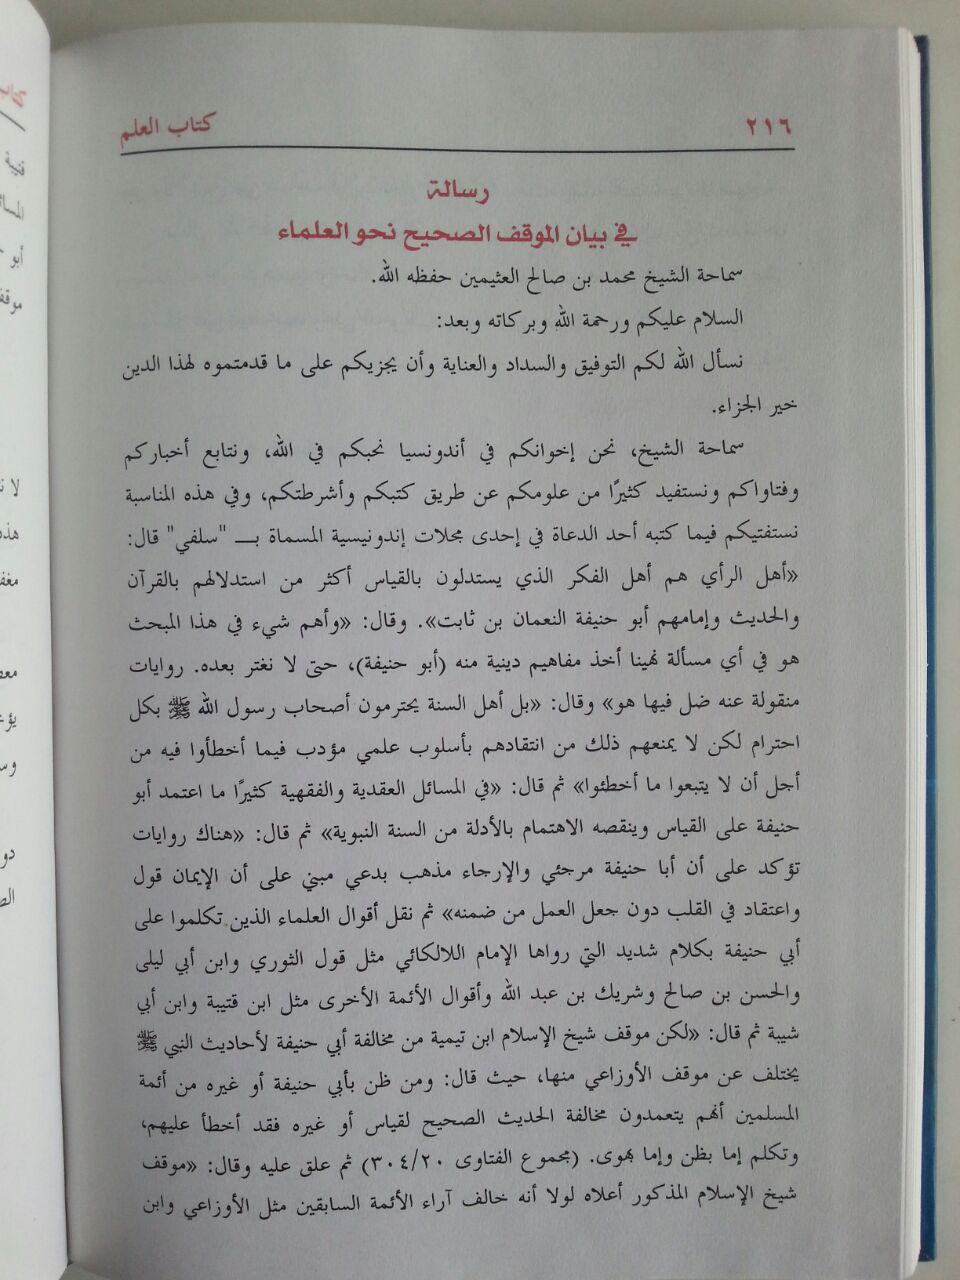 ٢١٦
كتاب العلم
رسالة
في بيان الموقف الصحيح نحو العلماء
سماحة الشيخ محمد بن صالح العثيمين حفظه الله.
السلام عليكم ورحمة الله وبركاته وبعد:
نسأل الله لكم التوفيق والسداد والعناية وأن يجزيكم على ما قدمتموه لهذا الدين
خير الجزاء.
سماحة الشيخ، نحن إخوانكم في أندونسيا نحبكم في الله، ونتابع أخباركم
وفتاواكم ونستفيد كثيرًا من علومكم عن طريق كتبكم وأشرطتكم، وفي هذه المناسبة
نستفتيكم فيما كتبه أحد الدعاة في إحدى مجلات إندونيسية المسماة بـ "سلفي" قال:
«أهل الرأي هم أهل الفكر الذي يستدلون بالقياس أكثر من استدلالهم بالقرآن
والحديث وإمامهم أبو حنيفة النعمان بن ثابت». وقال: «وأهم شيء في هذا المبحث
هو في أي مسألة نهينا أخذ مفاهيم دينية منه (أبو حنيفة)، حتى لا نغتر بعده. روايات
منقولة عنه ضل فيها هو» وقال: «بل أهل السنة يحترمون أصحاب رسول الله ﷺ بكل
احترام لكن لا يمنعهم ذلك من انتقادهم بأسلوب علمي مؤدب فيما أخطأوا فيه من
أجل أن لا يتبعوا ما أخطئوا» ثم قال: «في المسائل العقدية والفقهية كثيرًا ما اعتمد أبو
حنيفة على القياس وينقصه الاهتمام بالأدلة من السنة النبوية» ثم قال: «هناك روايات
تؤكد على أن أبا حنيفة مرجئي والإرجاء مذهب بدعي مبني على أن الإيمان قول
واعتقاد في القلب دون جعل العمل من ضمنه» ثم نقل أقوال العلماء الذين تكلموا على
أبي حنيفة بكلام شديد التي رواها الإمام اللالكائي مثل قول الثوري وابن أبي ليلى
والحسن بن صالح وشريك بن عبد الله وأقوال الأئمة الأخرى مثل ابن قتيبة وابن أبي
شيبة ثم قال: «لكن موقف شيخ الإسلام ابن تيمية من مخالفة أبي حنيفة لأحاديث النبي ﷺ
يختلف عن موقف الأوزاعي منها، حيث قال: ومن ظن بأبي حنيفة أو غيره من أئمة
المسلمين أنهم يتعمدون مخالفة الحديث الصحيح لقياس أو غيره فقد أخطأ عليهم،
وتكلم إما بظن وإما بهوى. (مجموع الفتاوى ٣٠٤/٢٠) ثم علق عليه وقال: «موقف
شيخ الإسلام المذكور أعلاه لولا أنه خالف آراء الأئمة السابقين مثل الأوزاعي وابن